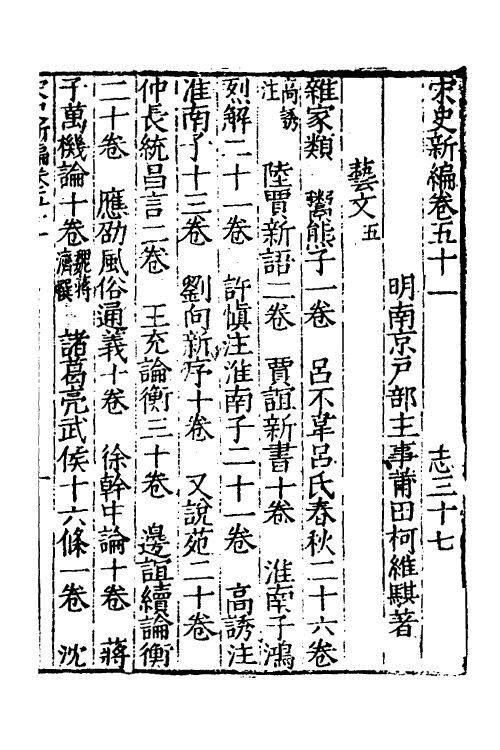 宋史新編卷五十一 志三十七
明南京戶部主事莆田柯維騏著
藝文五
雜家類 鬻熊子一卷 呂不韋呂氏春秋二十六卷
高誘注 陸賈新語二卷 賈誼新書十卷 淮南子鴻
烈解二十一卷 許慎注淮南子二十一卷 高誘注
淮南子十三卷 劉向新序十卷 又說苑二十卷
仲長統昌言二卷 王充論衡三十卷 邊誼續論衡
二十卷 應劭風俗通義十卷 徐幹中論十卷 蔣
子萬機論十卷魏蔣濟撰 諸葛亮武侯十六條一卷 沈
宋史新編卷五十一 一